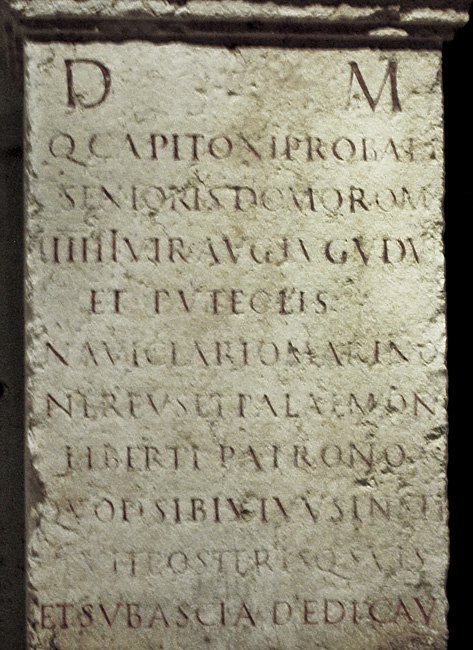 D M
Q CAPITONI PROBATI
SENIORIS DOMO ROM
IIIIIIVIR AVG LVGVDV
ET PVTEOLIS
NAVICLARIO MARINO
NEREVS ET PALAEMON
LIBERTI PATRONO
QVOD SIBI VIVVS INSTI
TVIT POSTERISQ SVIS
ET SVB ASCIA DEDICAV